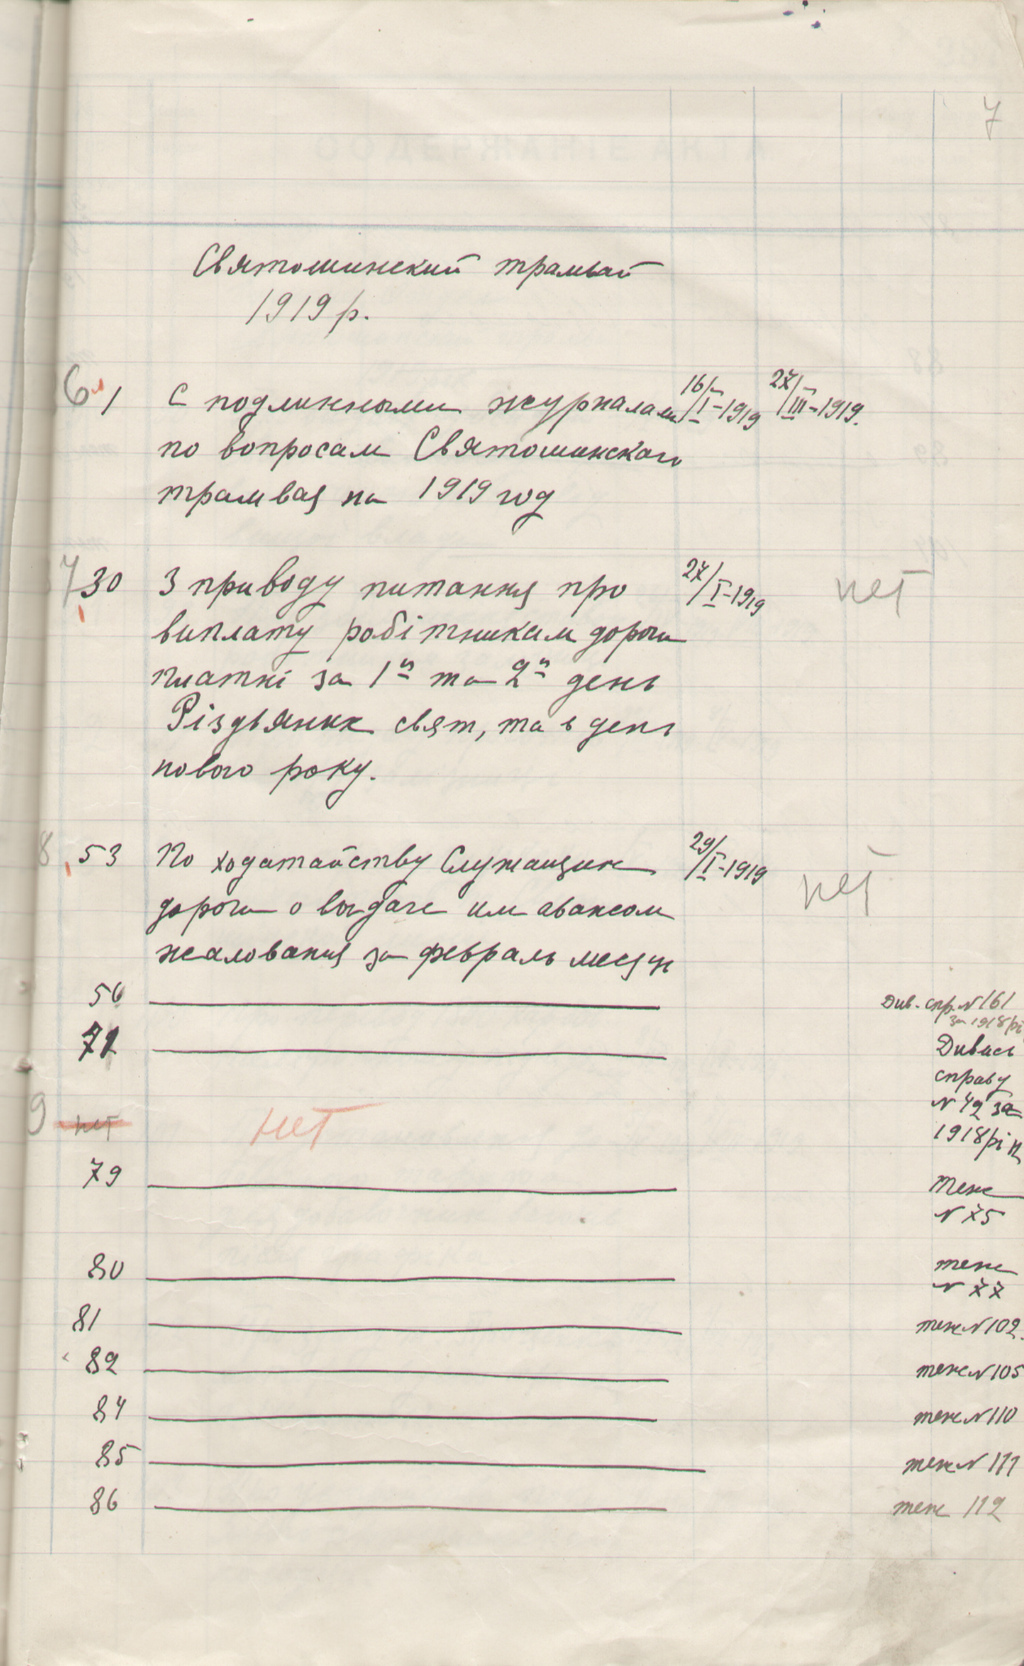 7
Святошинский трамвай
1919 р.
6 1 С подлинными журналами 16/I-1919 27/III-1919.
по вопросам Святошинского
трамвая на 1919 год
7 30 З приводу питання про 27/I-1919 нет
виплату робітникам дороги
платні за 1й та 2й день
Різдвяних свят, та в день
нового року.
8 53 По ходатайству Служащих 29/I-1919 нет
дороги о выдаче им авансом
жалования за февраль месяц
56 Див. спр. N 161
за 1918 рік
72 Дивись
справу
N 42 за
1918 рік
9 нет нет
79 теж
N 75
80 теж
N 77
81 теж N 102.
82 теж N 105
84 теж N 110
85 теж N 111
86 теж 112